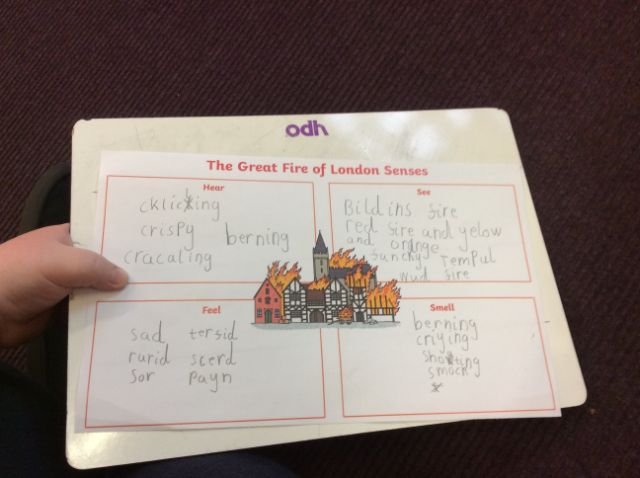 odh
The Great Fire of London Senses
Hear
cklicking
crispy berning
cracaling
See
Bildins fire
red fire and yelow
and orange
Tempul
wud fire
Feel
sad tersid
rurid scerd
sor payn
Smell
berning
criying
shouting
smock